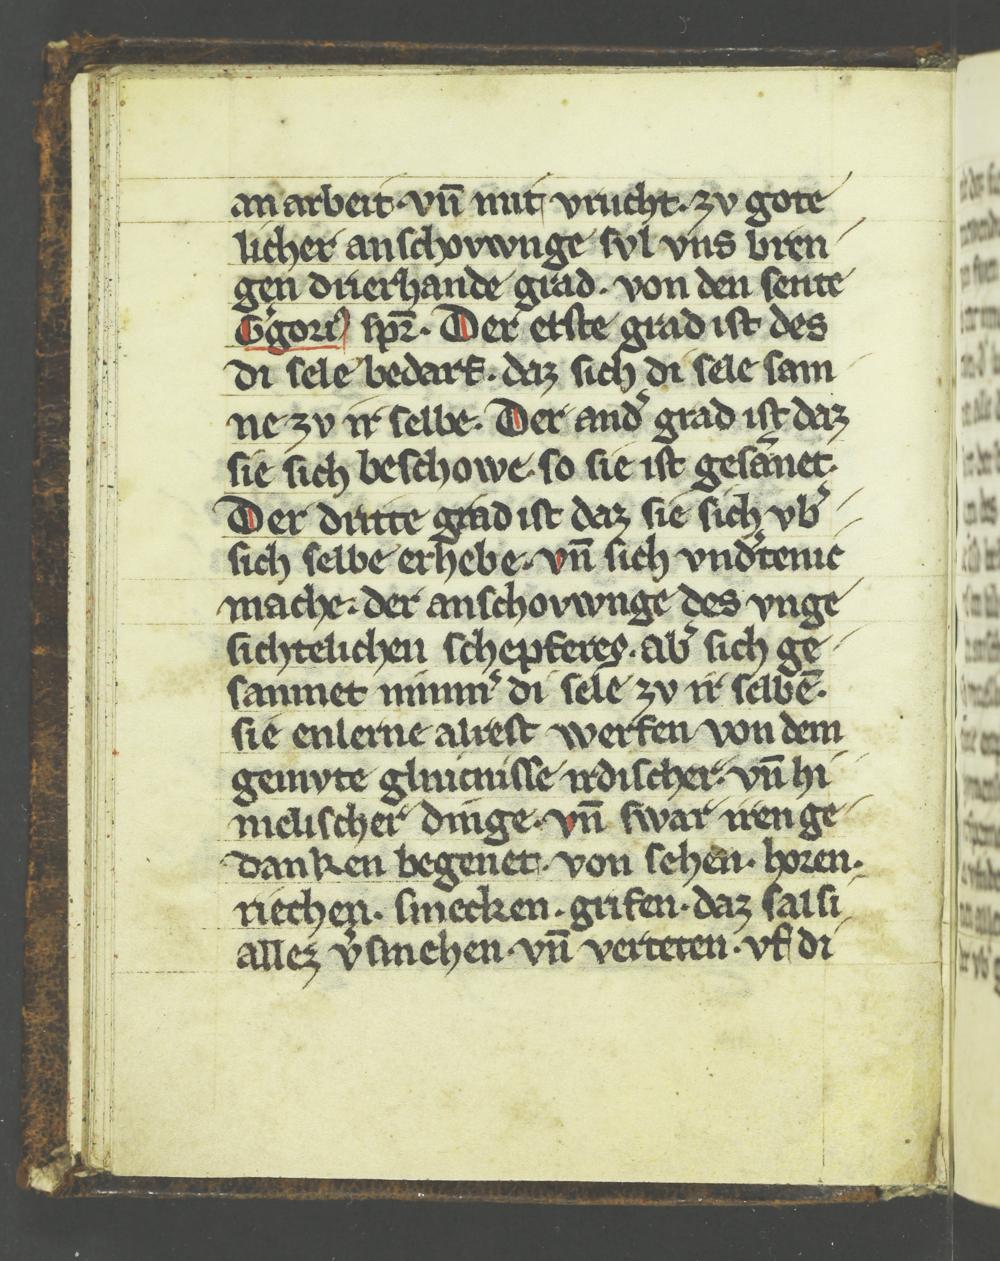 an arbeit · vn̄ mit vrucht · zv gote
licher anschovwnge svl vns bren
gen drierhande grad · von den sente
G̓gori⁹ spr̄ · Der erste grad ist des
di sele bedarf · daz sich di sele sam
ne zv ir selbe · Der and̓ grad ist daz
sie sich beschowe · so sie ist gesām̄et ·
Der dritte grad ist daz sie sich vb̓
sich selbe erhebe · vn̄ sich vnd̓tenic
mache · der anschovwnge des vnge
sichtelichen schepferes · ab̓ sich ge
samnet nimm̓ di sele zv ir selbē ·
sie enlerne alrest werfen von dem
gemvte glinicnisse irdischer · vn̄ hi
melischer dinge · vn̄ swar iren ge
danken begenet · von sehen · horen ·
riechen · smecken · grifen · daz sal si
allez v̓smehen · vn̄ verteten · vf di